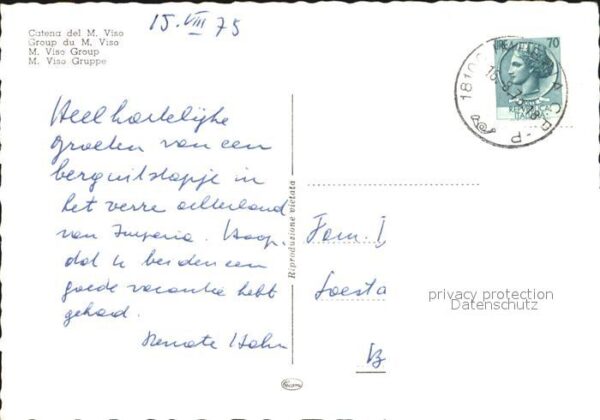 15.VIII 75
Catena del M. Viso
Group du M. Viso
M. Viso Group
M. Viso Gruppe
LIRE 70
18100
15.8.75-18
C.P.-P
Heel hartelijke
groeten van een
berguitstapje in
het verre achterland
van Imperia. Hoop,
dat u beiden een
goede vacantie hebt
gehad.
Renate Hahn
Riproduzione vietata
Fam. I
Soesta
B
privacy protection
Datenschutz